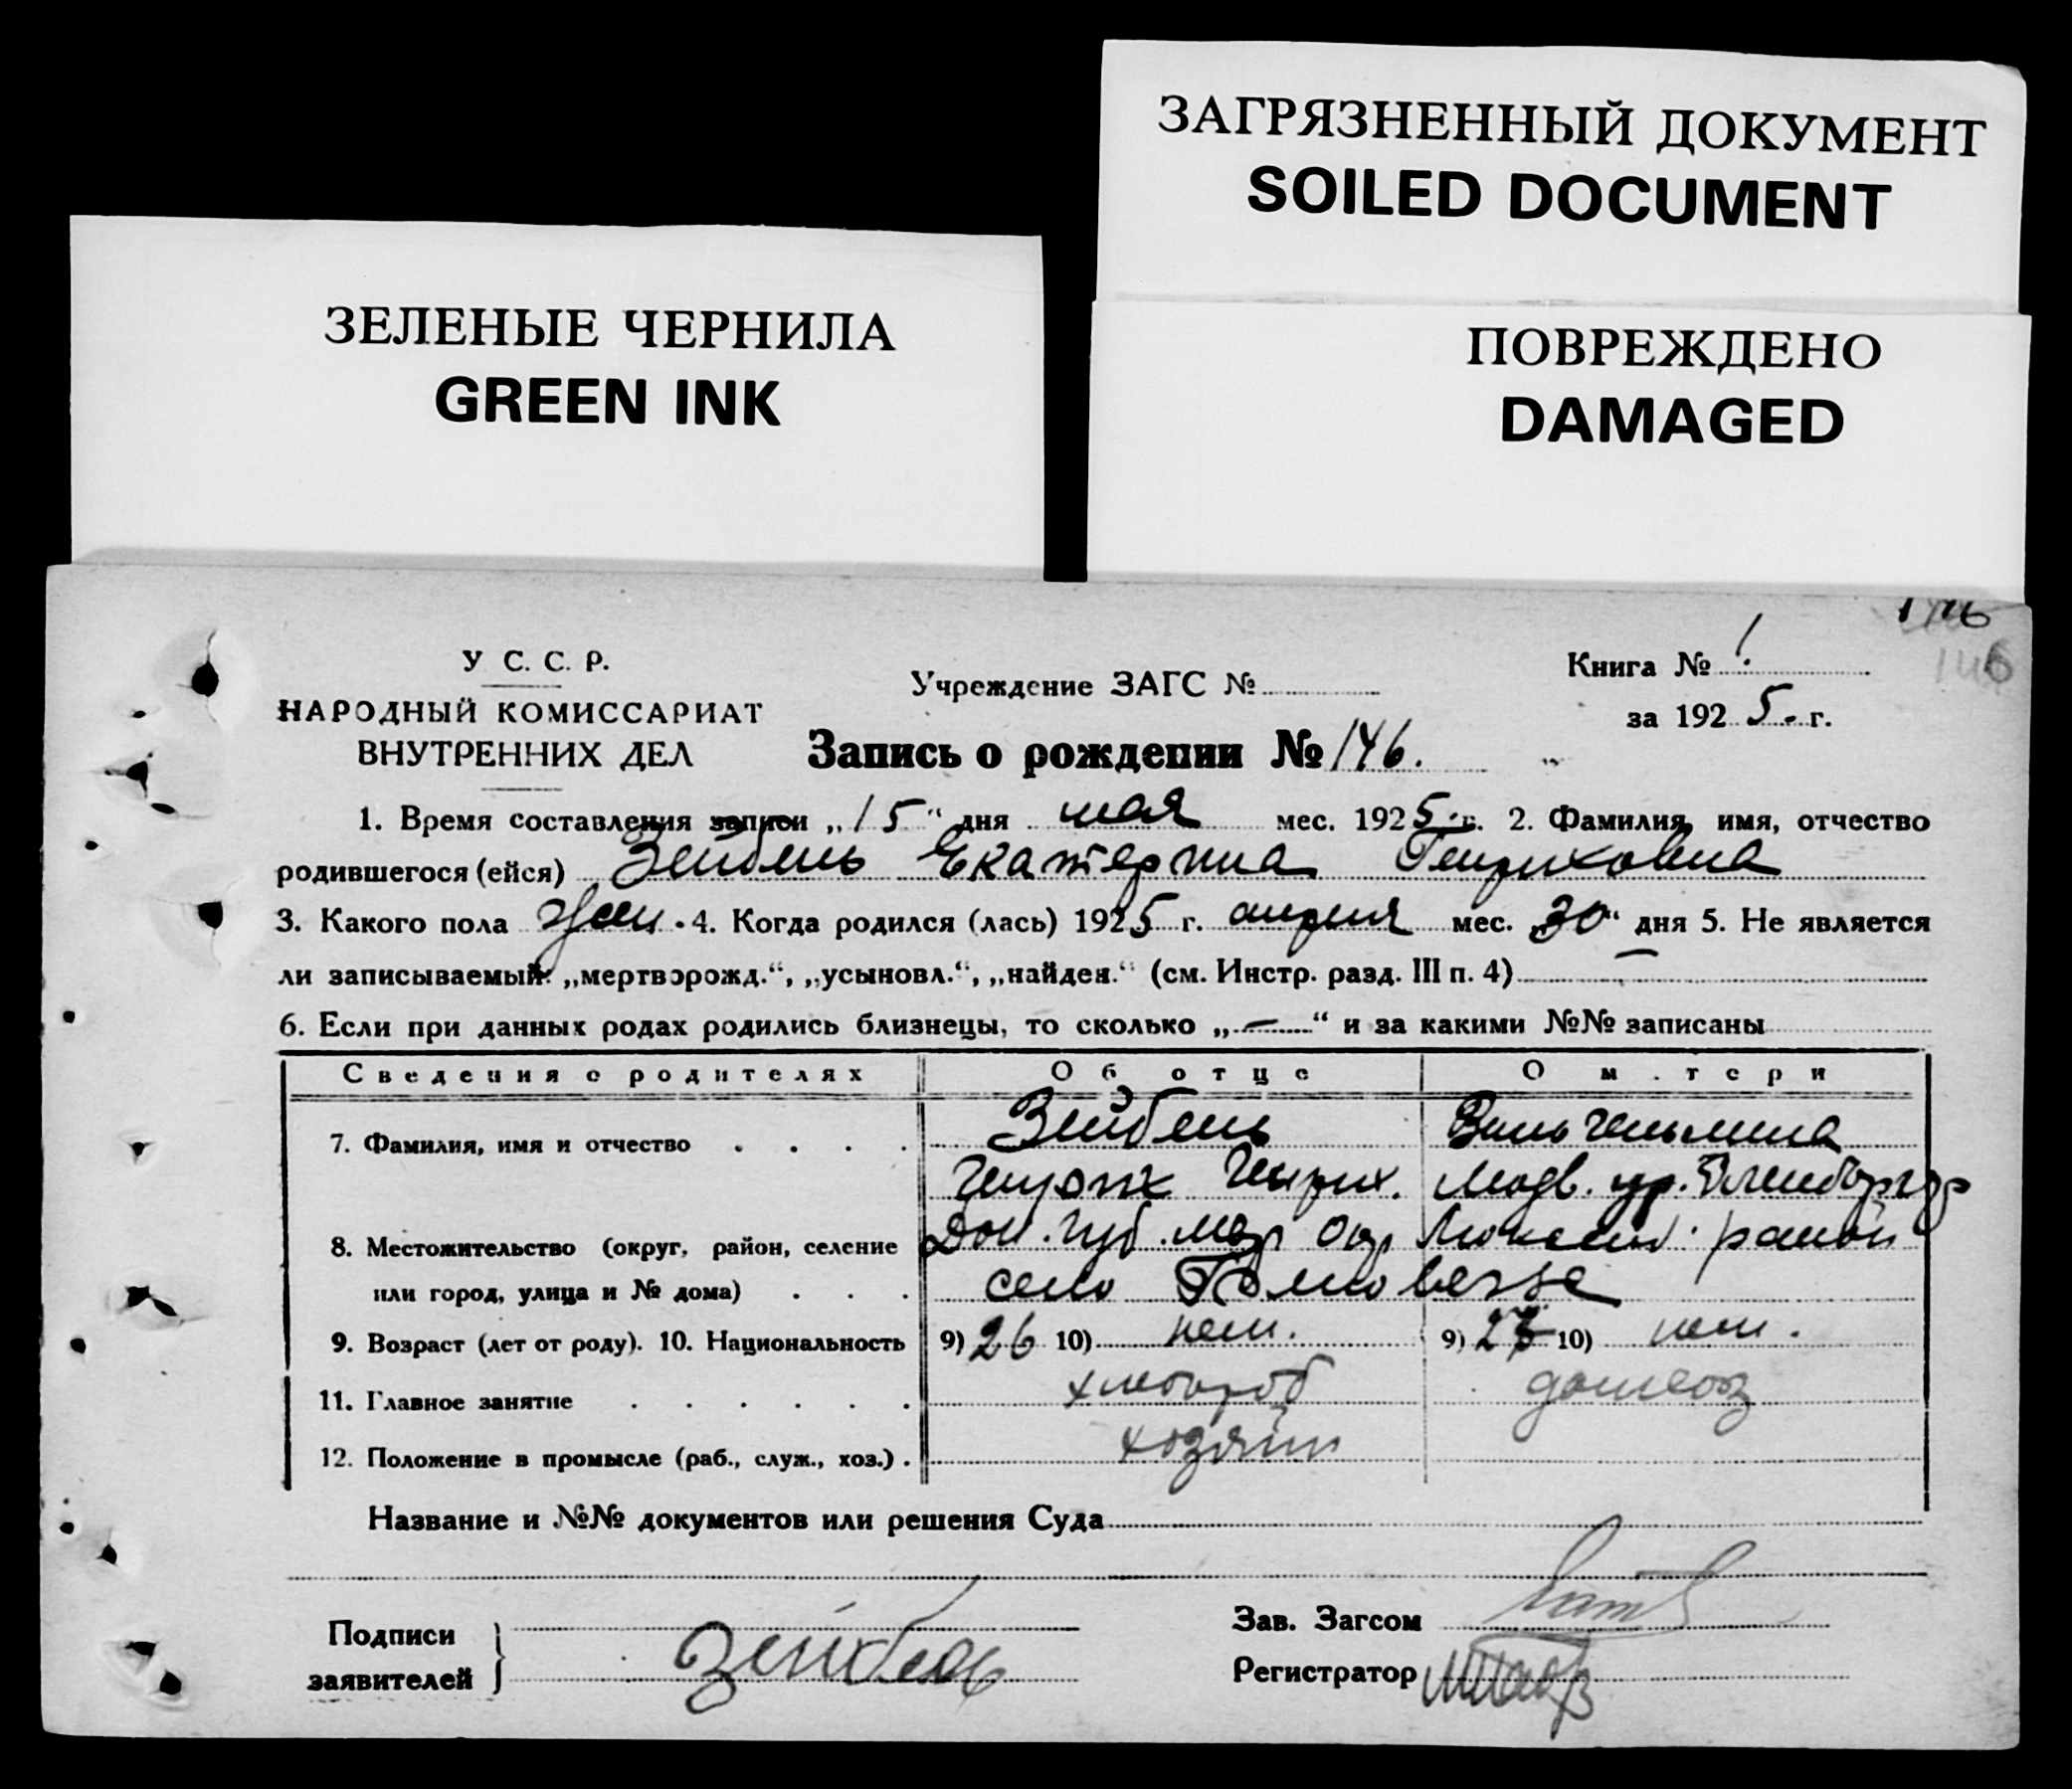 ЗАГРЯЗНЕННЫЙ ДОКУМЕНТ
SOILED DOCUMENT
ЗЕЛЕНЫЕ ЧЕРНИЛА
GREEN INK
ПОВРЕЖДЕНО
DAMAGED
146
146
У С. С. Р.
НАРОДНЫЙ КОМИССАРИАТ
ВНУТРЕННИХ ДЕЛ
Учреждение ЗАГС №
Книга № 1.
за 1925. г.
Запись о рождении № 146.
1. Время составления записи „15“ дня мая мес. 1925 г. 2. Фамилия, имя, отчество
родившегося (ейся) Зейбель Екатерина Генриховна
3. Какого пола жен. 4. Когда родился (лась) 1925 г. апреля мес. „30“ дня 5. Не является
ли записываемый: „мертворожд.“, „усыновл.“, „найден.“ (см. Инстр. разд. III п. 4) —
6. Если при данных родах родились близнецы, то сколько „—“ и за какими №№ записаны
Сведения о родителях Об отце О матери
7. Фамилия, имя и отчество Зейбель Вильгельмина
Генрих Генрих. Людв.
8. Местожительство (округ, район, селение Дон. губ. Мар окр район
или город, улица и № дома) село
9. Возраст (лет от роду). 10. Национальность 9) 26 10) нем. 9) 23 10) нем.
11. Главное занятие хлебороб домхоз
12. Положение в промысле (раб., служ., хоз.) хозяин
Название и №№ документов или решения Суда
Подписи
заявителей Зейбель
Зав. Загсом
Регистратор